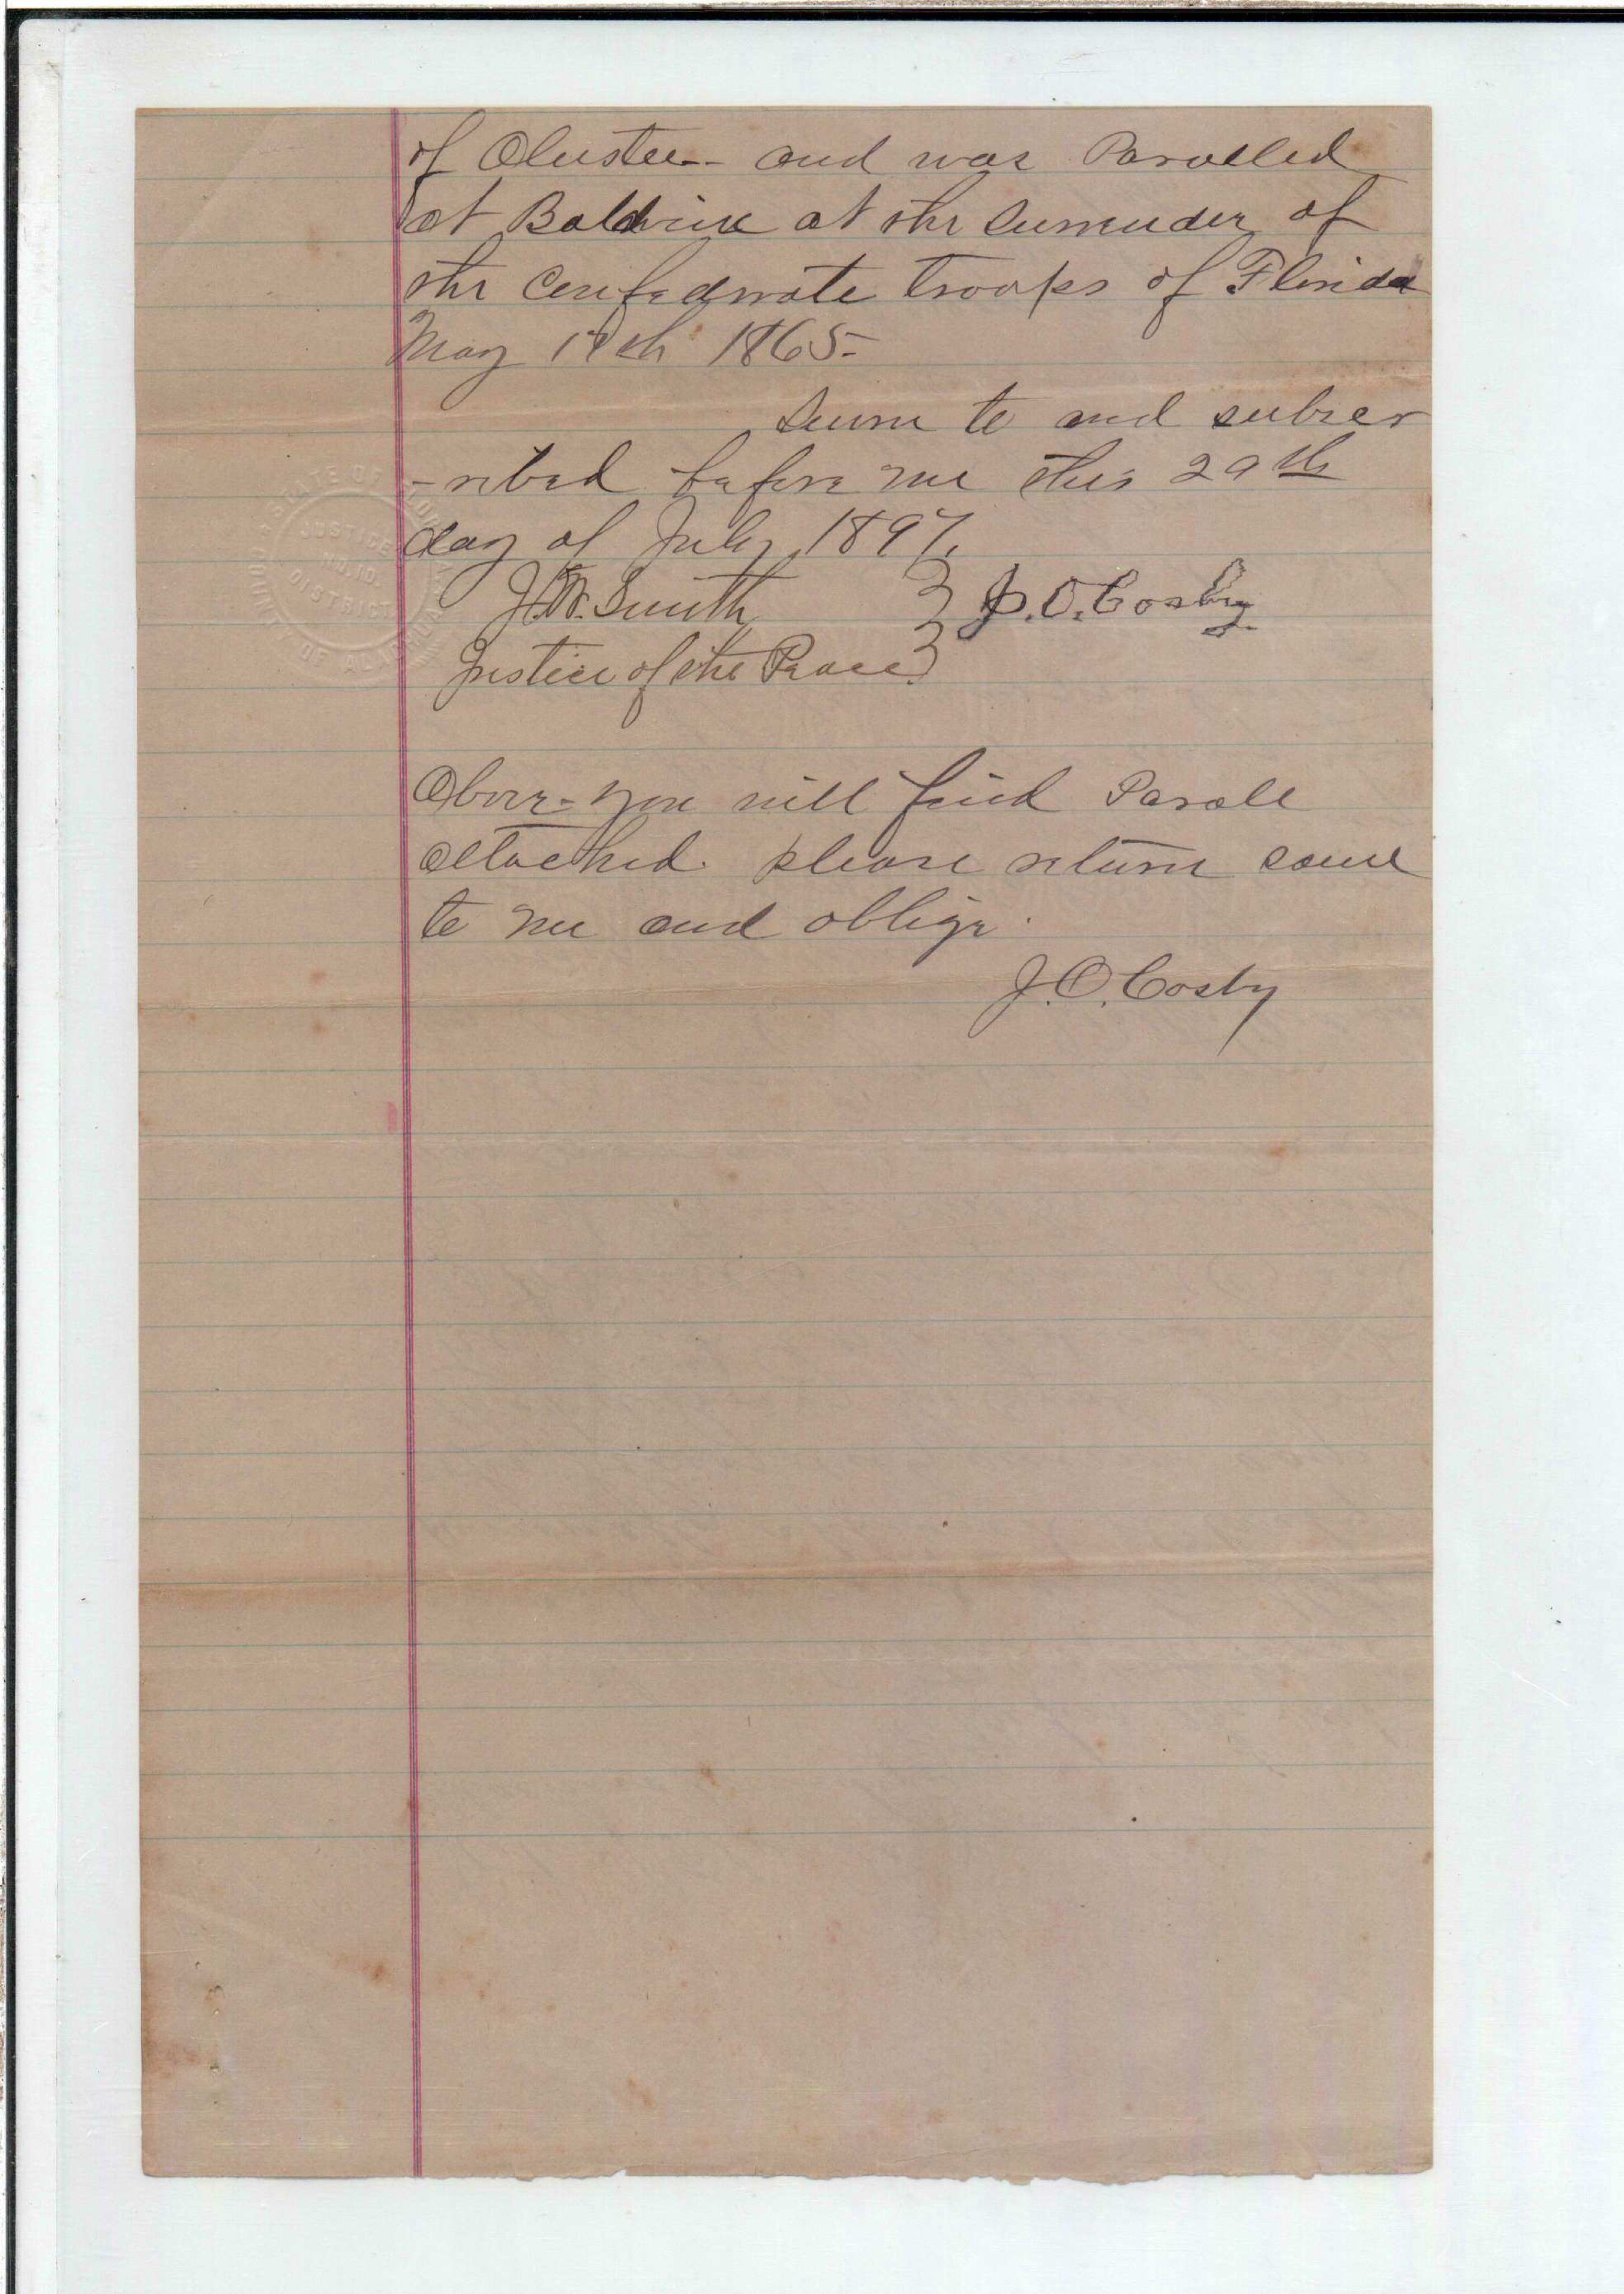 of Olustee - and was Parolled
at Baldwin at the surrender of
the Confederate troops of Florida
May 17th 1865-
Sworn to and subscr
-ribed before me this 29th
day of July 1897.
J.W. Smith } J.O. Cosby
Justice of the Peace }
STATE OF FLORIDA
COUNTY OF ALACHUA
JUSTICE
NO. 10.
DISTRICT
Above you will find Parole
attached. please return same
to me and oblige.
J.O. Cosby